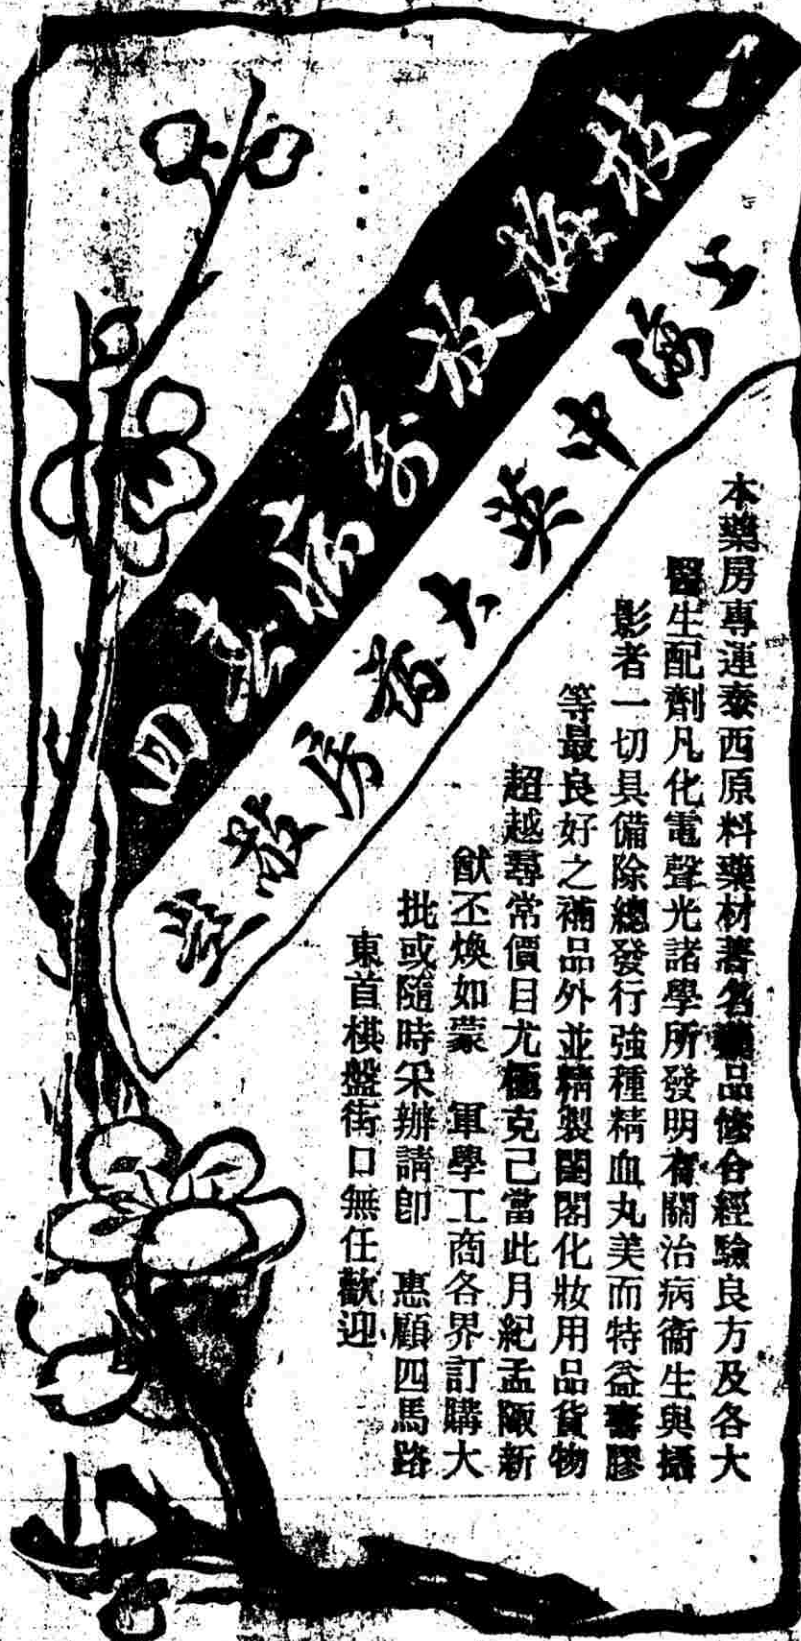 一枝梅放萬病春回
上海中英大药房敬登
本藥房專運泰西原料藥材著名藥品修合經驗良方及各大
醫生配劑凡化電聲光諸學所發明有關治病衞生與攝
影者一切具備除總發行強種精血丸美而特益壽膠
等最良好之補品外並精製閨閣化妝用品貨物
超越尋常價目尤極克己當此月紀孟陬新
猷丕煥如蒙 軍學工商各界訂購大
批或隨時采辦請卽 惠顧四馬路
東首棋盤街口無任歡迎